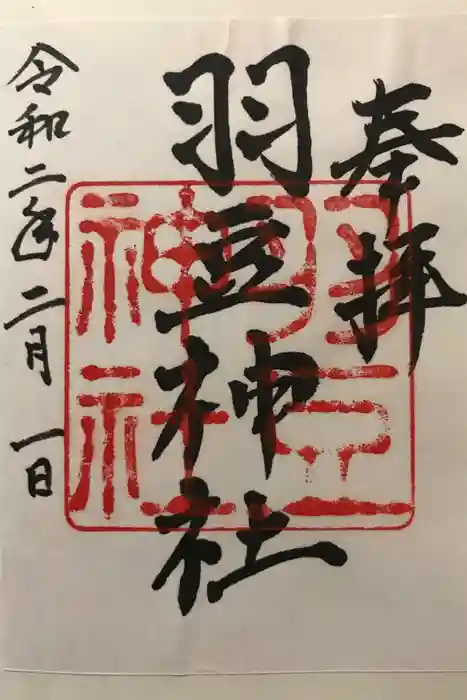 奉拝
羽豆神社
羽豆神社
令和二年二月一日